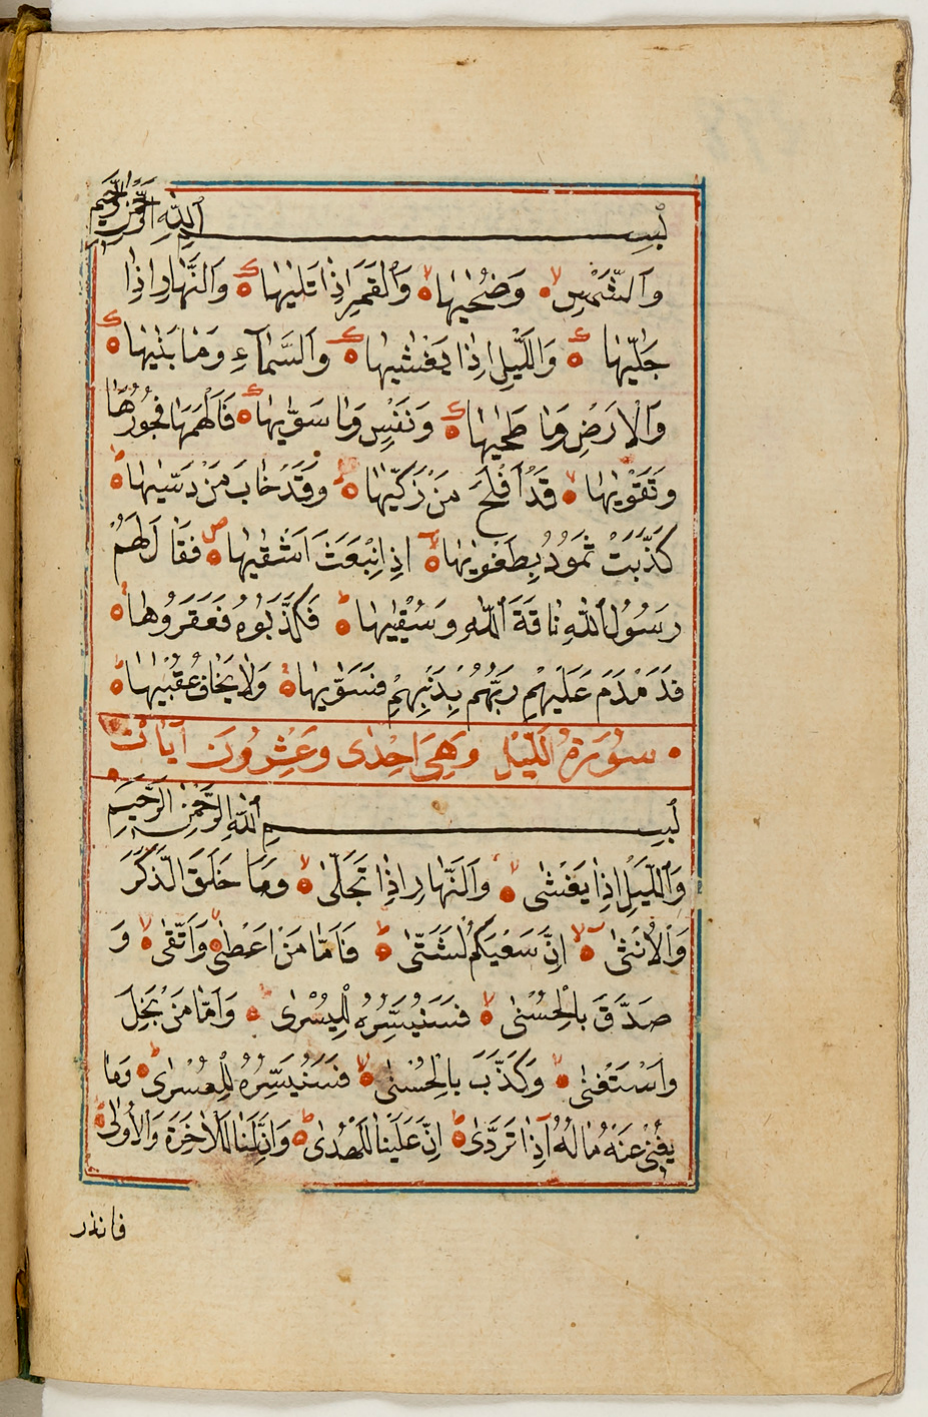 بِسْمِ اللّٰهِ الرَّحْمٰنِ الرَّحِيمِ
وَالشَّمْسِ وَضُحٰيهَا وَالْقَمَرِ اِذَا تَلٰيهَا وَالنَّهَارِ اِذَا
جَلّٰيهَا وَاللَّيْلِ اِذَا يَغْشٰيهَا وَالسَّمَآءِ وَمَا بَنٰيهَا
وَالْاَرْضِ وَمَا طَحٰيهَا وَنَفْسٍ وَمَا سَوّٰيهَا فَاَلْهَمَهَا فُجُورَهَا
وَتَقْوٰيهَا قَدْ اَفْلَحَ مَنْ زَكّٰيهَا وَقَدْ خَابَ مَنْ دَسّٰيهَا
كَذَّبَتْ ثَمُودُ بِطَغْوٰيهَا اِذِ انْبَعَثَ اَشْقٰيهَا فَقَالَ لَهُمْ
رَسُولُ اللّٰهِ نَاقَةَ اللّٰهِ وَسُقْيٰيهَا فَكَذَّبُوهُ فَعَقَرُوهَا
فَدَمْدَمَ عَلَيْهِمْ رَبُّهُمْ بِذَنْبِهِمْ فَسَوّٰيهَا وَلَا يَخَافُ عُقْبٰيهَا
سُورَةُ الَّيْلِ وَهِيَ اِحْدٰى وَعِشْرُونَ اٰيَاتٍ
بِسْمِ اللّٰهِ الرَّحْمٰنِ الرَّحِيمِ
وَاللَّيْلِ اِذَا يَغْشٰى وَالنَّهَارِ اِذَا تَجَلّٰى وَمَا خَلَقَ الذَّكَرَ
وَالْاُنْثٰى اِنَّ سَعْيَكُمْ لَشَتّٰى فَاَمَّا مَنْ اَعْطٰى وَاتَّقٰى وَ
صَدَّقَ بِالْحُسْنٰى فَسَنُيَسِّرُهُ لِلْيُسْرٰى وَاَمَّا مَنْ بَخِلَ
وَاسْتَغْنٰى وَكَذَّبَ بِالْحُسْنٰى فَسَنُيَسِّرُهُ لِلْعُسْرٰى وَمَا
يُغْنِي عَنْهُ مَالُهُ اِذَا تَرَدّٰى اِنَّ عَلَيْنَا لَلْهُدٰى وَاِنَّ لَنَا لَلْاٰخِرَةَ وَالْاُولٰى
فانذر